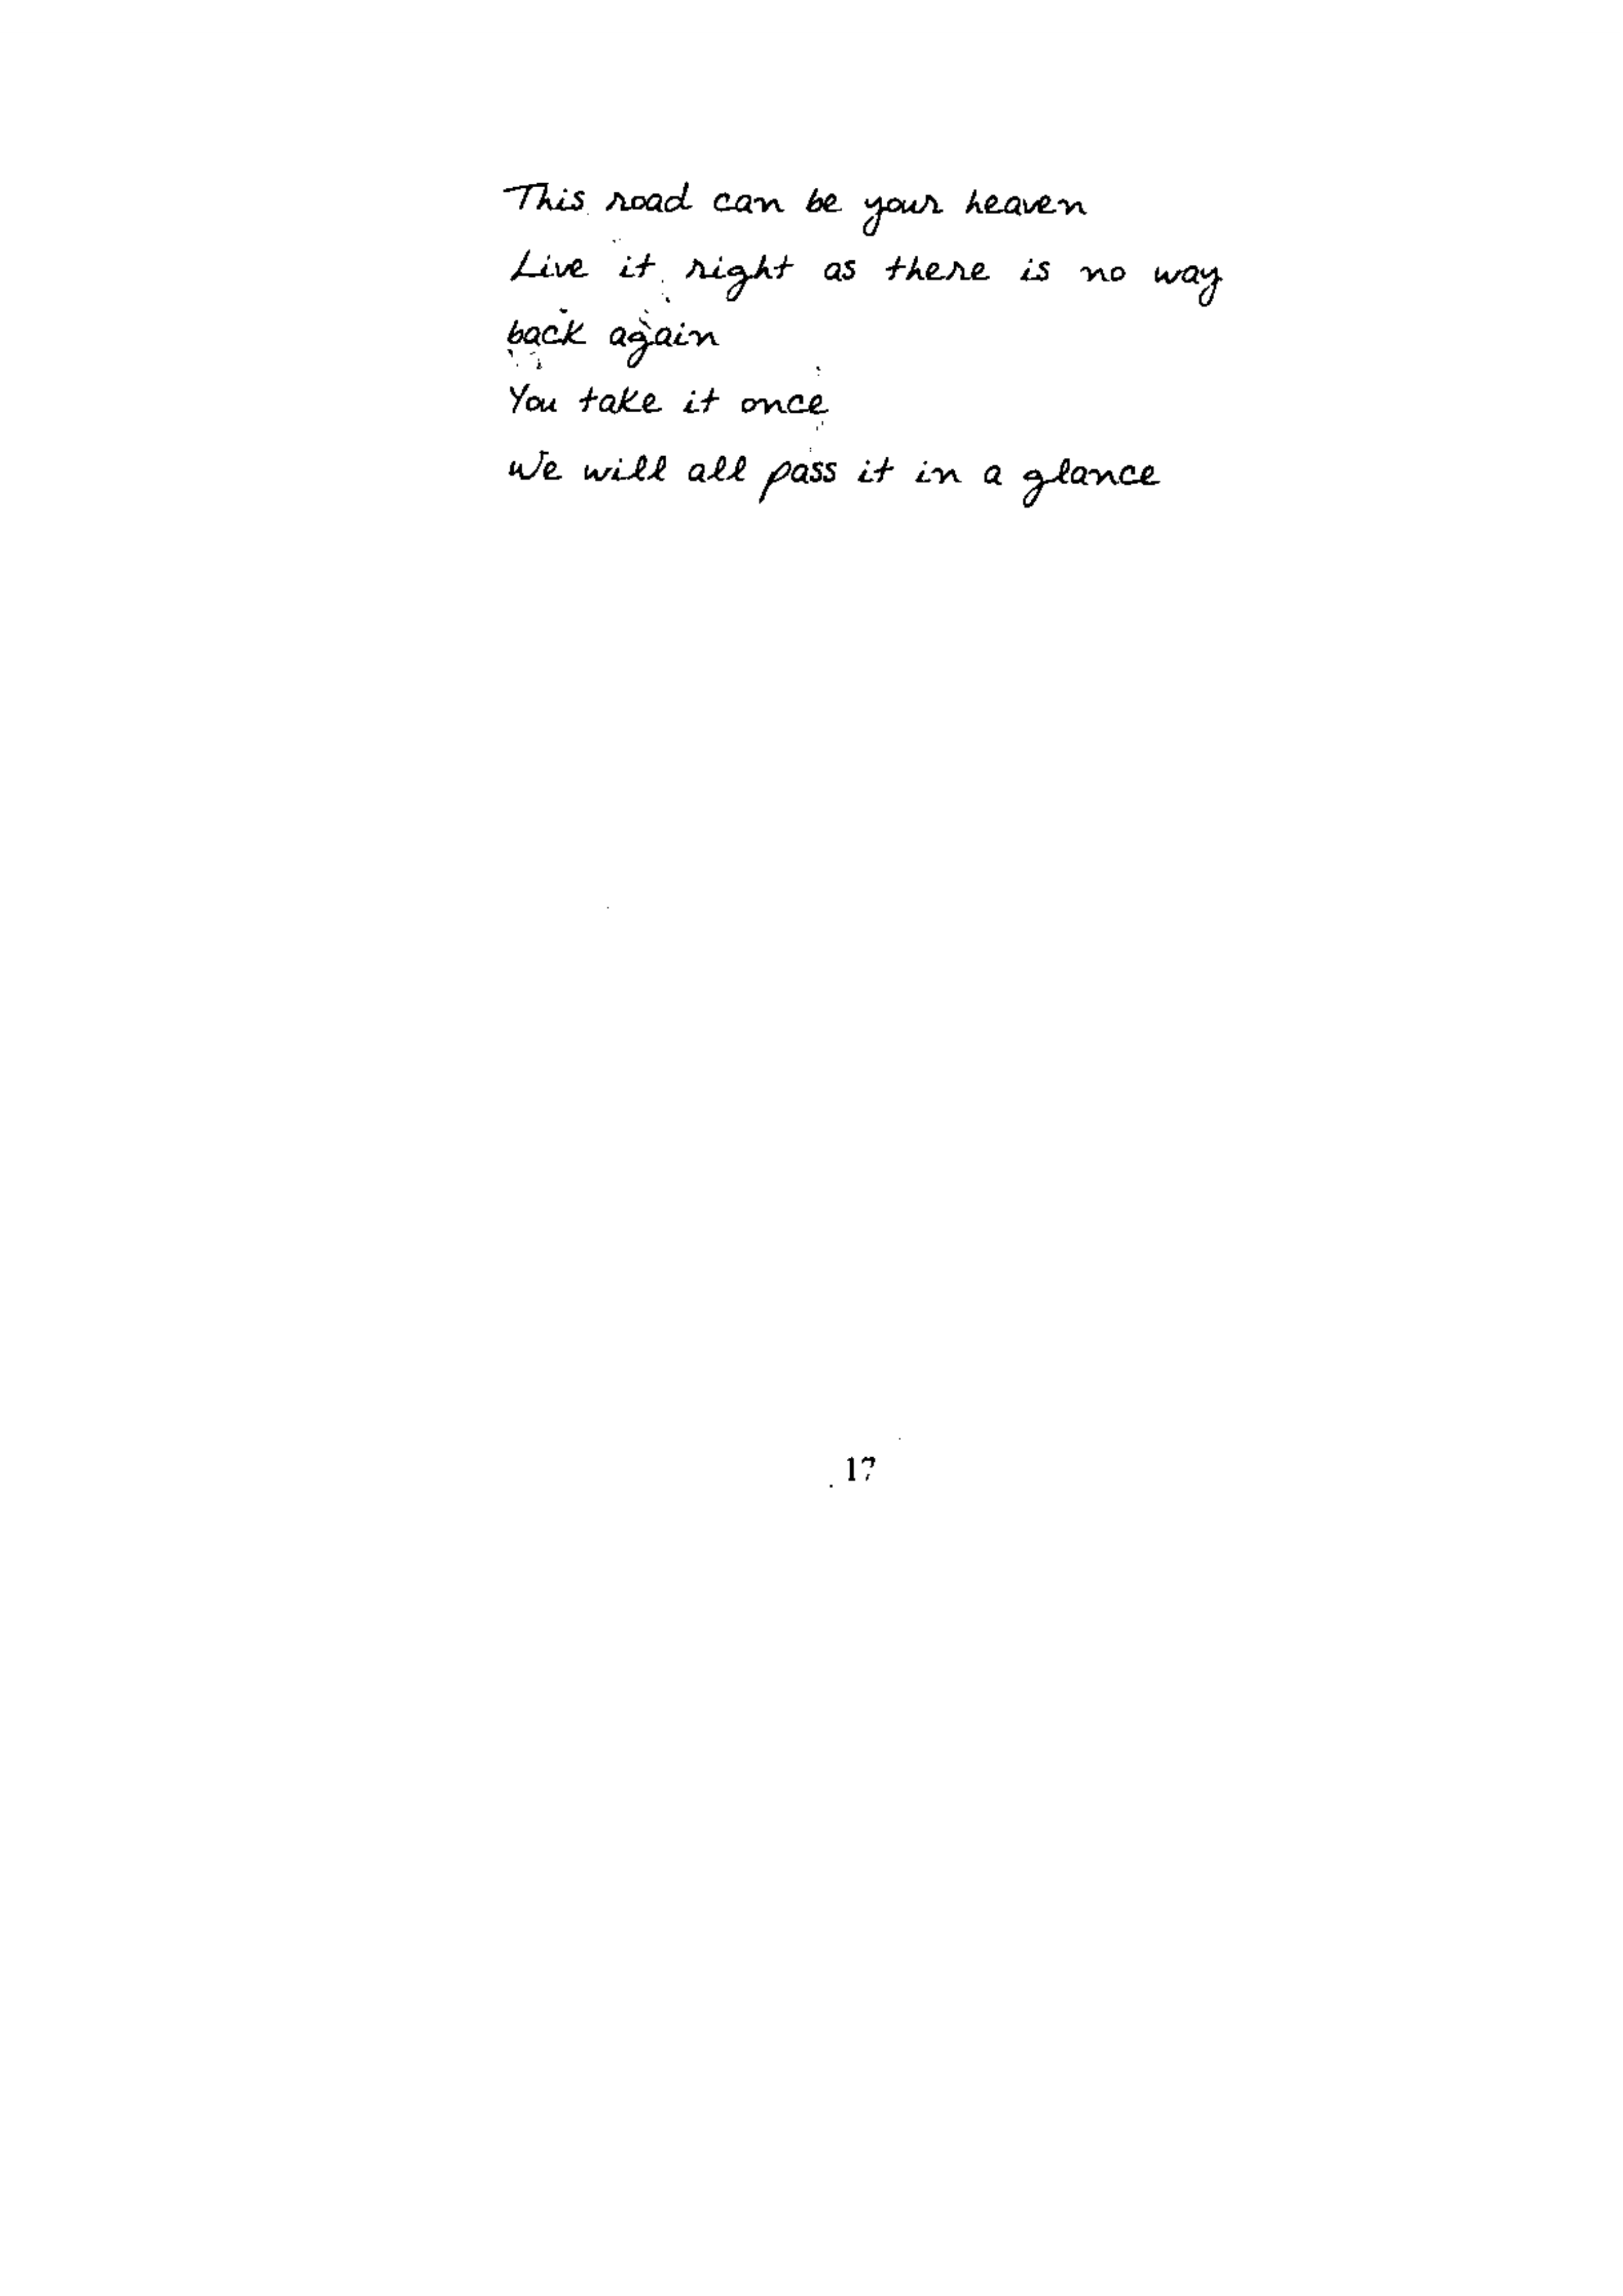 This road can be your heaven
Live it right as there is no way
back again
You take it once
We will all pass it in a glance
17